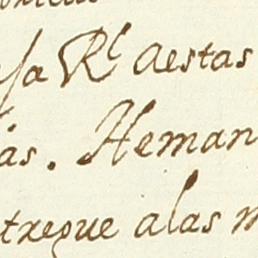 sa Rˡ aestas
as. Heman
treque alas m